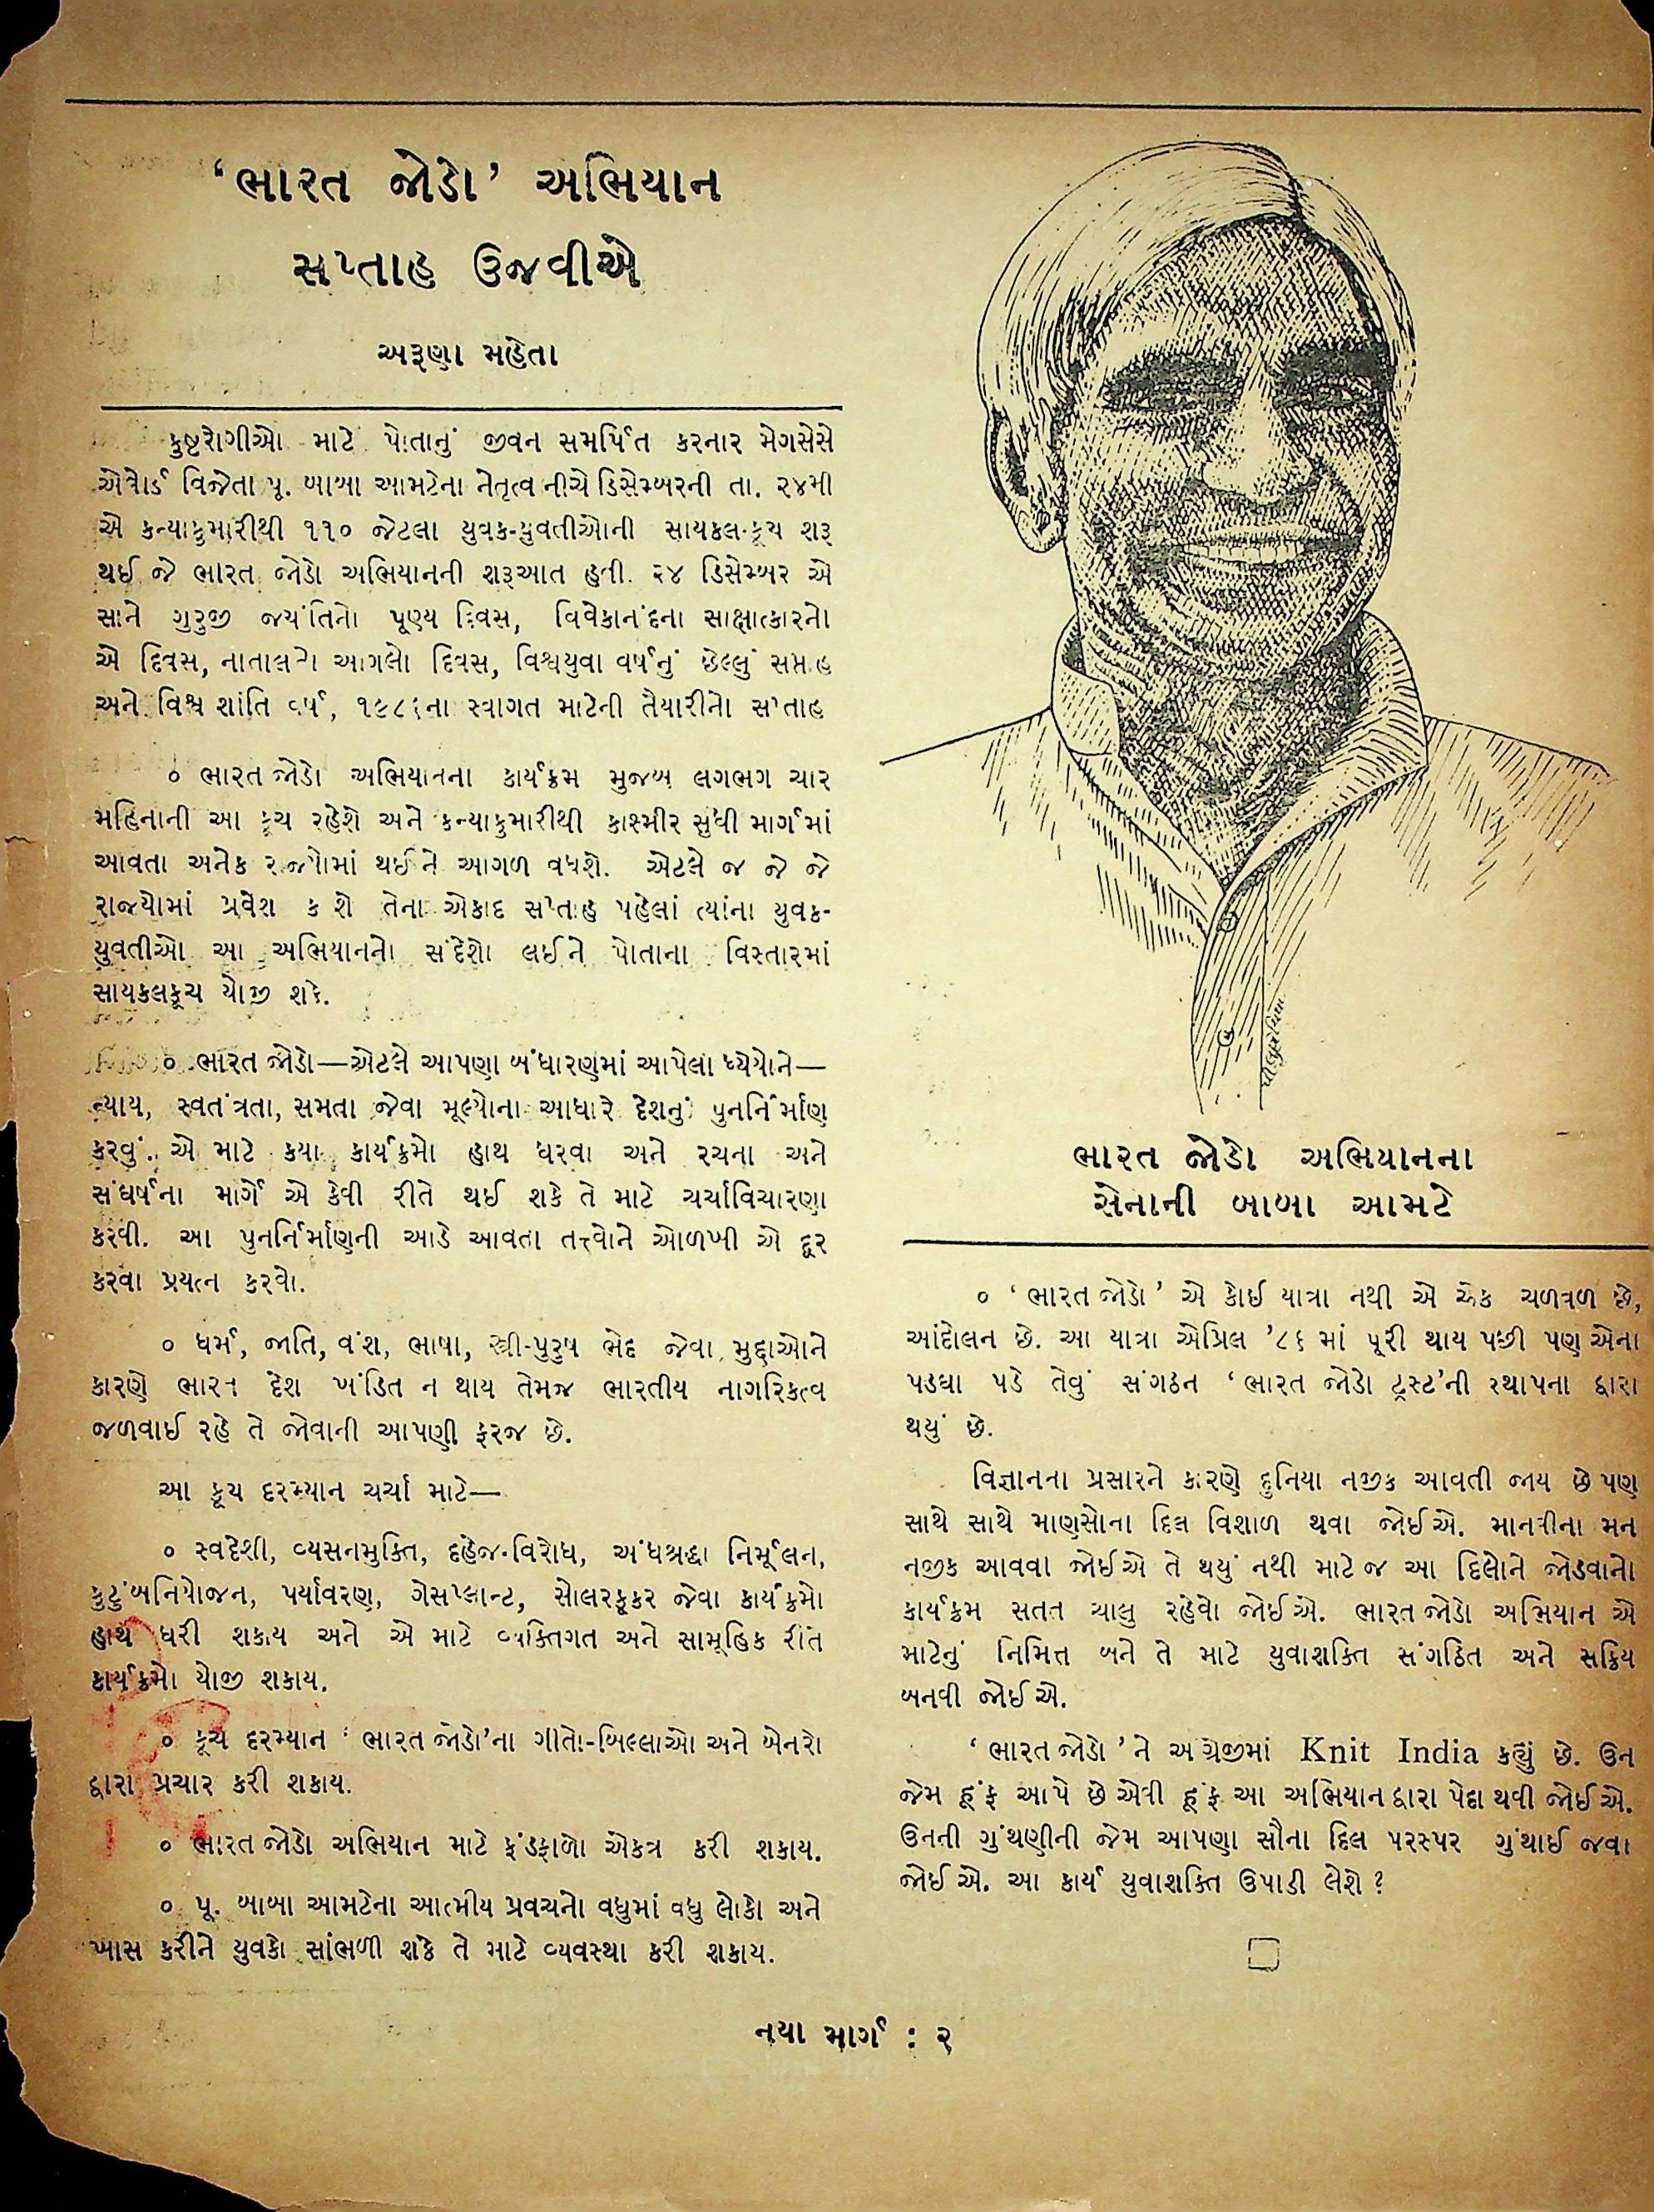 ‘ભારત જોડો’ અભિયાન
સપ્તાહ ઉજવીએ
અરૂણા મહેતા
કુષ્ટરોગીઓ માટે પોતાનું જીવન સમર્પિત કરનાર મેગસેસે
એવોર્ડ વિજેતા પૂ. બાબા આમટેના નેતૃત્વ નીચે ડિસેમ્બરની તા. ૨૪મી
એ કન્યાકુમારીથી ૧૧૦ જેટલા યુવક-યુવતીઓની સાયકલ-કૂચ શરૂ
થઈ જે ભારત જોડો અભિયાનની શરૂઆત હતી. ૨૪ ડિસેમ્બર એ
સાને ગુરુજી જયંતિનો પૂણ્ય દિવસ, વિવેકાનંદના સાક્ષાત્કારનો
એ દિવસ, નાતાલનો આગલો દિવસ, વિશ્વયુવા વર્ષનું છેલ્લું સપ્તાહ
અને વિશ્વ શાંતિ વર્ષ, ૧૯૮૬ના સ્વાગત માટેની તૈયારીનો સપ્તાહ
૦ ભારત જોડો અભિયાનના કાર્યક્રમ મુજબ લગભગ ચાર
મહિનાની આ કૂચ રહેશે અને કન્યાકુમારીથી કાશ્મીર સુધી માર્ગમાં
આવતા અનેક રાજ્યોમાં થઈને આગળ વધશે. એટલે જ જે જે
રાજ્યોમાં પ્રવેશ કરશે તેના એકાદ સપ્તાહ પહેલાં ત્યાંના યુવક-
યુવતીઓ આ અભિયાનનો સંદેશો લઈને પોતાના વિસ્તારમાં
સાયકલકૂચ યોજી શકે.
૦ ભારત જોડો—એટલે આપણા બંધારણમાં આપેલા ધ્યેયોને—
ન્યાય, સ્વતંત્રતા, સમતા જેવા મૂલ્યોના આધારે દેશનું પુનર્નિર્માણ
કરવું. એ માટે કયા કાર્યક્રમો હાથ ધરવા અને રચના અને
સંઘર્ષના માર્ગે એ કેવી રીતે થઈ શકે તે માટે ચર્ચાવિચારણા
કરવી. આ પુનર્નિર્માણની આડે આવતા તત્ત્વોને ઓળખી એ દૂર
કરવા પ્રયત્ન કરવો.
૦ ધર્મ, જાતિ, વંશ, ભાષા, સ્ત્રી-પુરુષ ભેદ જેવા મુદ્દાઓને
કારણે ભારત દેશ ખંડિત ન થાય તેમજ ભારતીય નાગરિકત્વ
જળવાઈ રહે તે જોવાની આપણી ફરજ છે.
આ કૂચ દરમ્યાન ચર્ચા માટે—
૦ સ્વદેશી, વ્યસનમુક્તિ, દહેજ-વિરોધ, અંધશ્રદ્ધા નિર્મૂલન,
કુટુંબનિયોજન, પર્યાવરણ, ગેસપ્લાન્ટ, સોલરકૂકર જેવા કાર્યક્રમો
હાથ ધરી શકાય અને એ માટે વ્યક્તિગત અને સામૂહિક રીતે
કાર્યક્રમો યોજી શકાય.
૦ કૂચ દરમ્યાન ‘ભારત જોડો’ના ગીતો-બિલ્લાઓ અને બેનરો
દ્વારા પ્રચાર કરી શકાય.
૦ ભારત જોડો અભિયાન માટે ફંડફાળો એકત્ર કરી શકાય.
૦ પૂ. બાબા આમટેના આત્મીય પ્રવચનો વધુમાં વધુ લોકો અને
ખાસ કરીને યુવકો સાંભળી શકે તે માટે વ્યવસ્થા કરી શકાય.
ભારત જોડો અભિયાનના
સેનાની બાબા આમટે
૦ ‘ભારત જોડો’ એ કોઈ યાત્રા નથી એ એક ચળવળ છે,
આંદોલન છે. આ યાત્રા એપ્રિલ ’૮૬ માં પૂરી થાય પછી પણ એના
પડઘા પડે તેવું સંગઠન ‘ભારત જોડો ટ્રસ્ટ’ની સ્થાપના દ્વારા
થયું છે.
વિજ્ઞાનના પ્રસારને કારણે દુનિયા નજીક આવતી જાય છે પણ
સાથે સાથે માણસોના દિલ વિશાળ થવા જોઈએ. માનવીના મન
નજીક આવવા જોઈએ તે થયું નથી માટે જ આ દિલોને જોડવાનો
કાર્યક્રમ સતત ચાલુ રહેવો જોઈએ. ભારત જોડો અભિયાન એ
માટેનું નિમિત્ત બને તે માટે યુવાશક્તિ સંગઠિત અને સક્રિય
બનવી જોઈએ.
‘ભારત જોડો’ને અંગ્રેજીમાં Knit India કહ્યું છે. ઉન
જેમ હૂંફ આપે છે એવી હૂંફ આ અભિયાન દ્વારા પેદા થવી જોઈએ.
ઉનની ગુંથણીની જેમ આપણા સૌના દિલ પરસ્પર ગુંથાઈ જવા
જોઈએ. આ કાર્ય યુવાશક્તિ ઉપાડી લેશે ?
નયા માર્ગ : ૨